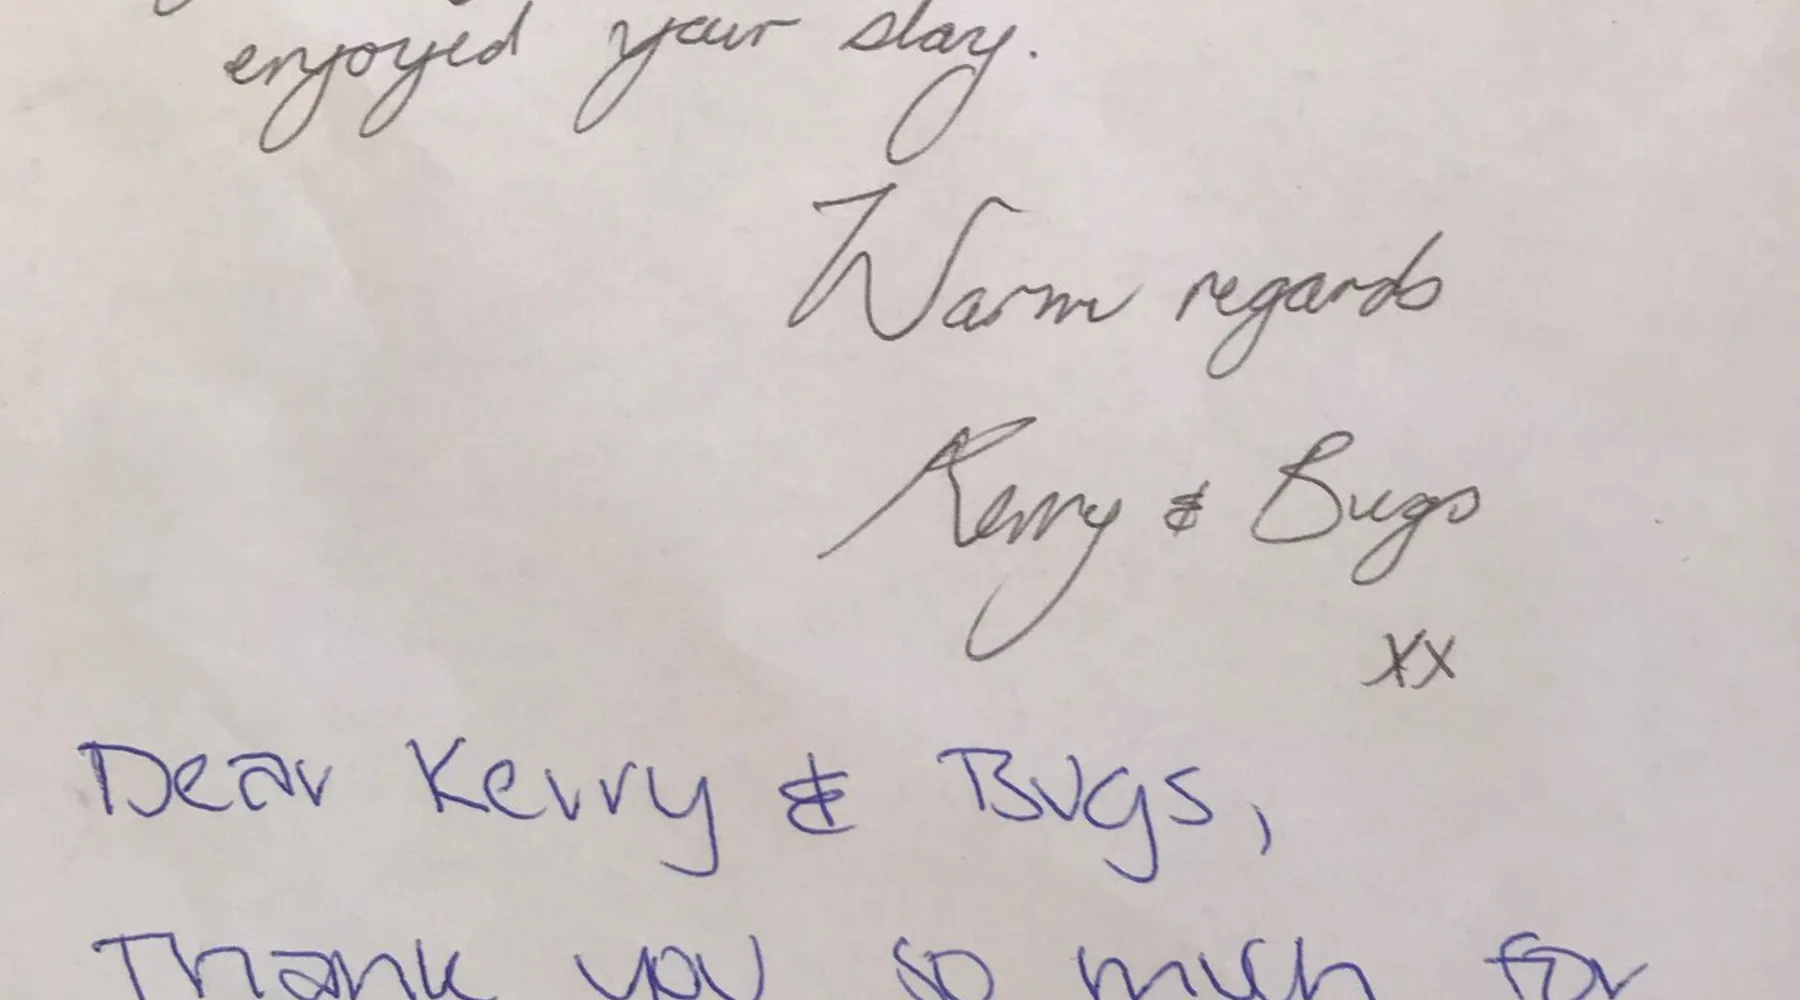 enjoyed your stay.
Warm regards
Kerry & Bugs
xx
Dear Kerry & Bugs,
Thank you so much for